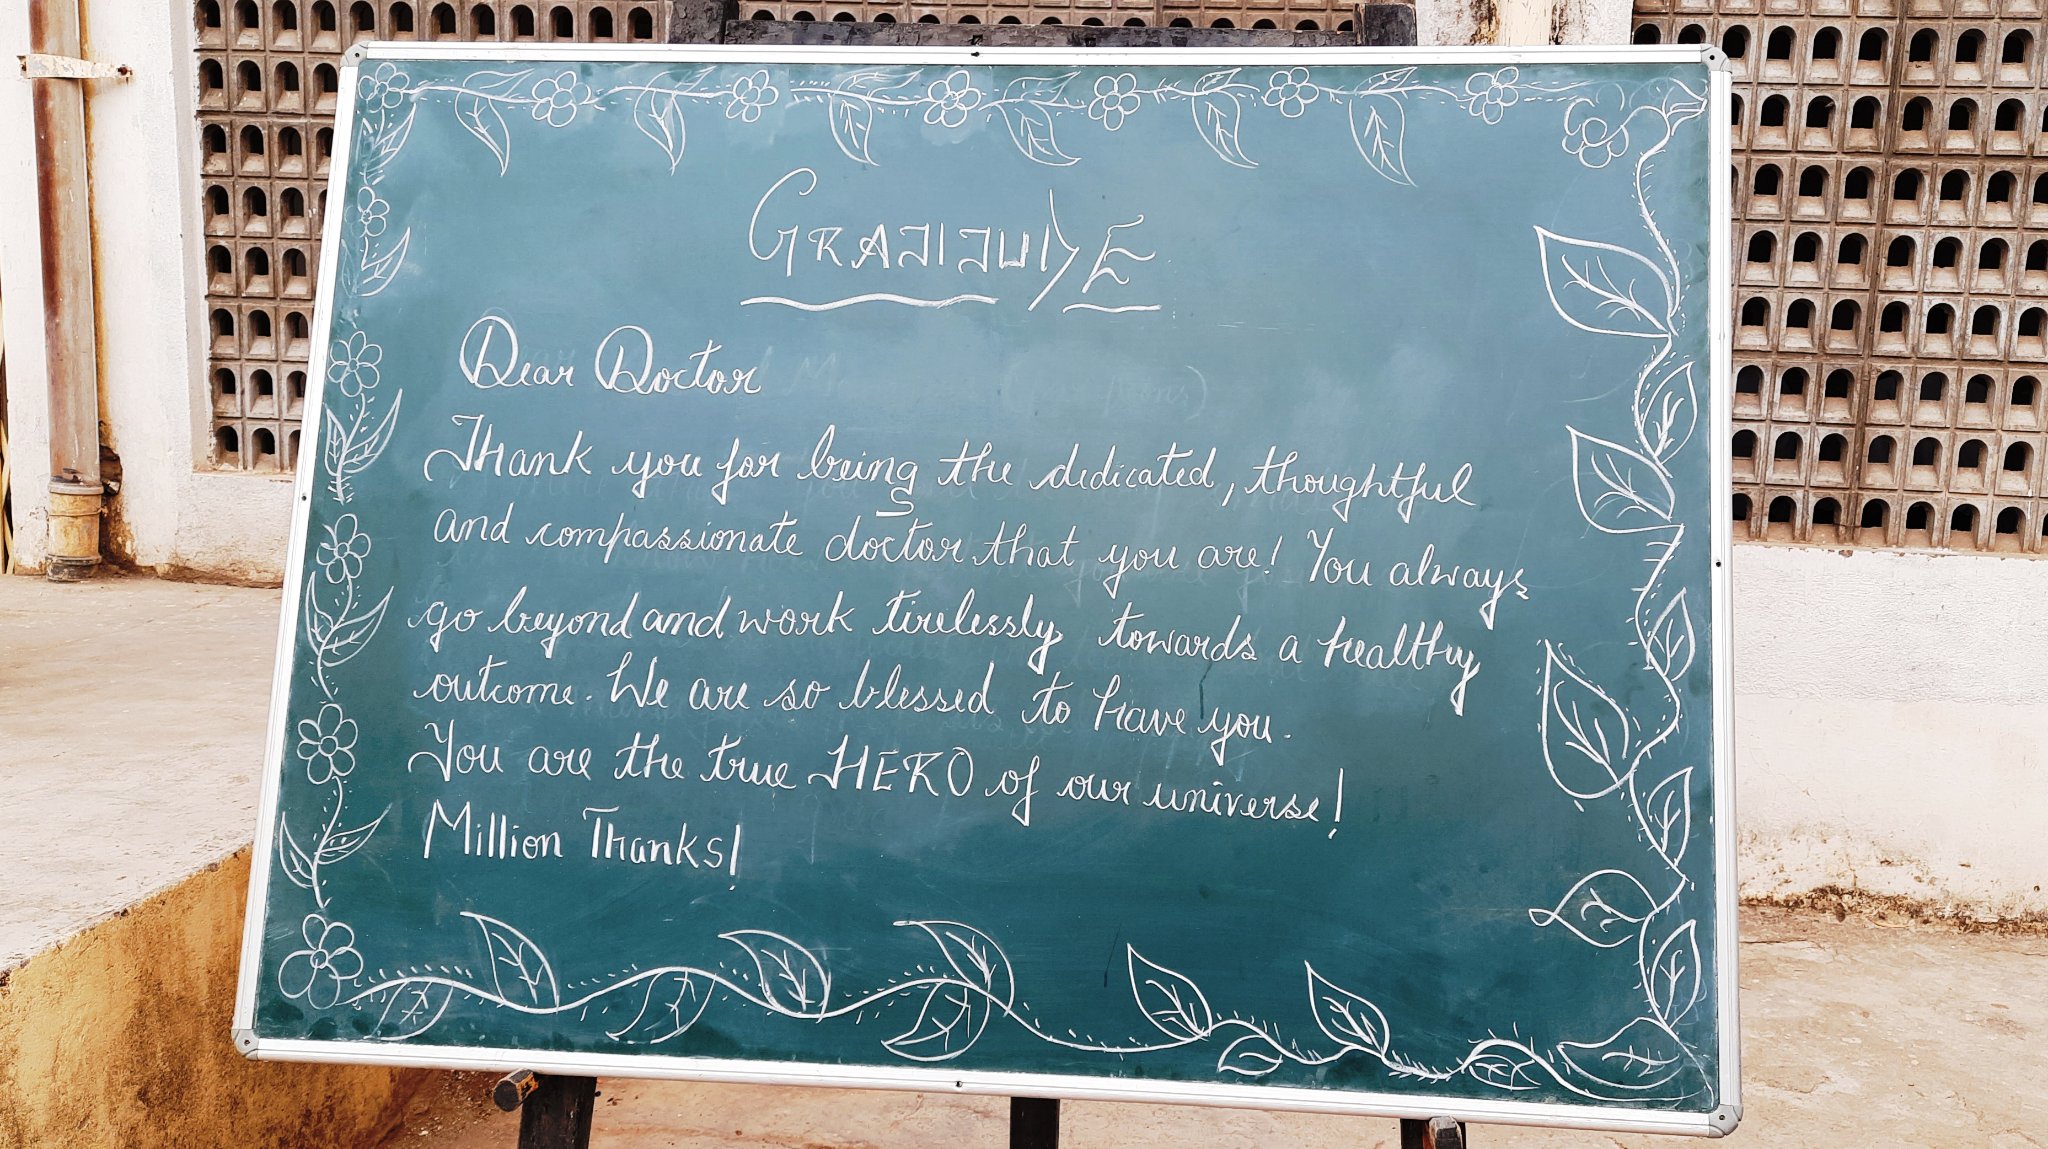 GRATITUDE
Dear Doctor
Thank you for being the dedicated, thoughtful
and compassionate doctor that you are! You always
go beyond and work tirelessly towards a healthy
outcome. We are so blessed to have you.
You are the true HERO of our universe!
Million Thanks!